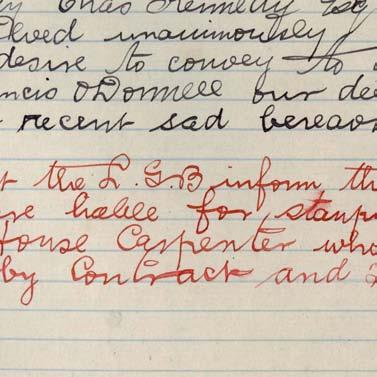 Chas Kennedy Esq
olved unanimously
desire to convey to
ncis O'Donnell our de
recent sad bereav
t the L.G.B inform th
re liable for stamp
House Carpenter who
by Contract and